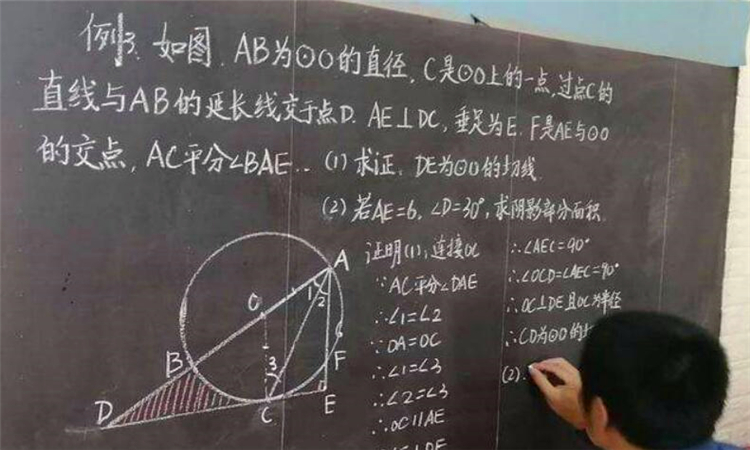 例3. 如图, AB为⊙O的直径, C是⊙O上的一点,过点C的
直线与AB的延长线交于点D. AE⊥DC, 垂足为E. F是AE与⊙O
的交点, AC平分∠BAE..
(1) 求证: DE为⊙O的切线.
(2) 若AE=6, ∠D=30°, 求阴影部分面积.
证明(1): 连接OC
∵AC平分∠DAE
∴∠1=∠2
∵OA=OC
∴∠1=∠3
∴∠2=∠3
∴OC∥AE
∴∠AEC=90°
∴∠OCD=∠AEC=90°
∴OC⊥DE且OC为半径
∴CD为⊙O的切
(2).
A
1
2
O
B
3
F
D
C
E